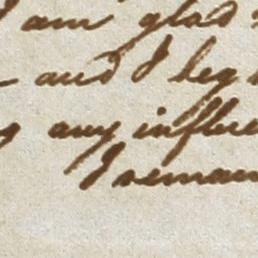 I am glad
and I beg
any influe
I remain